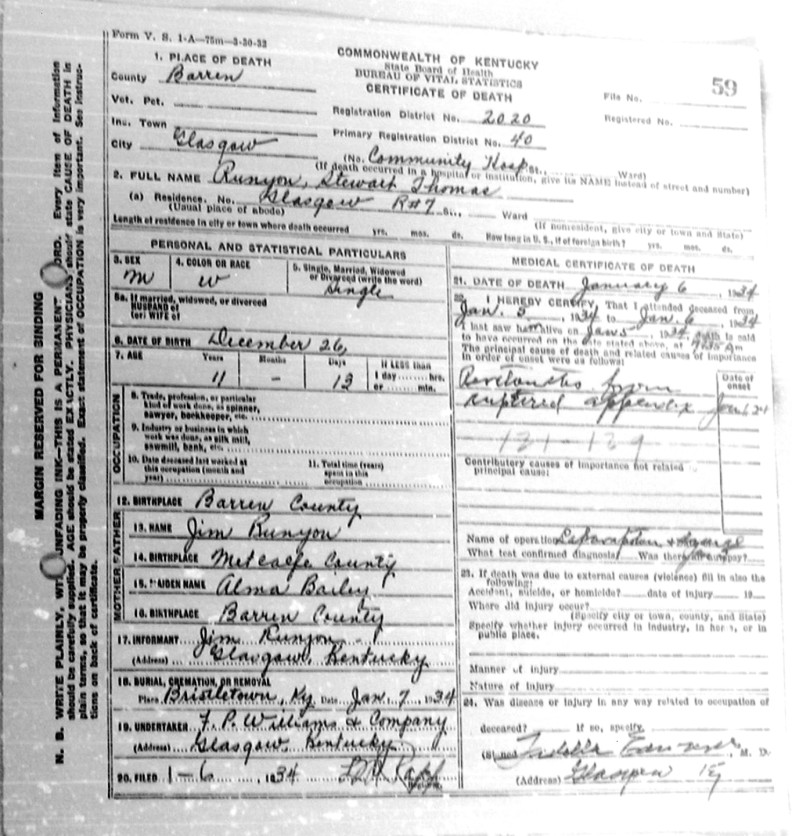 Form V. S. 1-A—75m—3-30-32
COMMONWEALTH OF KENTUCKY
State Board of Health
BUREAU OF VITAL STATISTICS
CERTIFICATE OF DEATH
59
File No.
Registered No.
1. PLACE OF DEATH
County Barren
Vot. Pct.
Inc. Town
City Glasgow
Registration District No. 2020
Primary Registration District No. 40
(No. Community Hosp St., Ward)
(If death occurred in a hospital or institution, give its NAME instead of street and number)
2. FULL NAME Runyon, Stewart Thomas
(a) Residence. No. Glasgow R#7 St., Ward
(Usual place of abode) (If nonresident, give city or town and State)
Length of residence in city or town where death occurred yrs. mos. ds. How long in U. S., if of foreign birth? yrs. mos. ds.
PERSONAL AND STATISTICAL PARTICULARS
3. SEX M
4. COLOR OR RACE W
5. Single, Married, Widowed or Divorced (write the word) Single
5a. If married, widowed, or divorced
HUSBAND of
(or) WIFE of
6. DATE OF BIRTH December 26,
7. AGE Years Months Days If LESS than
11 - 13 1 day hrs.
or min.
OCCUPATION
8. Trade, profession, or particular
kind of work done, as spinner,
sawyer, bookkeeper, etc.
9. Industry or business in which
work was done, as silk mill,
sawmill, bank, etc.
10. Date deceased last worked at
this occupation (month and
year)
11. Total time (years)
spent in this
occupation
12. BIRTHPLACE Barren County
FATHER
13. NAME Jim Runyon
14. BIRTHPLACE Metcalfe County
MOTHER
15. MAIDEN NAME Alma Bailey
16. BIRTHPLACE Barren County
17. INFORMANT Jim Runyon
(Address) Glasgow, Kentucky
18. BURIAL, CREMATION, OR REMOVAL
Place Bristletown, Ky. Date Jan. 7, 1934
19. UNDERTAKER F. P. Williams & Company
(Address) Glasgow, Kentucky
20. FILED 1-6, 1934
Registrar.
MEDICAL CERTIFICATE OF DEATH
21. DATE OF DEATH January 6, 1934
22. I HEREBY CERTIFY, That I attended deceased from
Jan. 5, 1934 to Jan. 6, 1934
I last saw him alive on Jan 5, 1934, death is said
to have occurred on the date stated above, at
The principal cause of death and related causes of importance
in order of onset were as follows:
Date of onset
from
ruptured appendix
131-129
Contributory causes of importance not related to
principal cause:
Name of operation
What test confirmed diagnosis? Was there an autopsy?
23. If death was due to external causes (violence) fill in also the
following:
Accident, suicide, or homicide? date of injury 19
Where did injury occur?
(Specify city or town, county, and State)
Specify whether injury occurred in industry, in home, or in
public place.
Manner of injury
Nature of injury
24. Was disease or injury in any way related to occupation of
deceased? If so, specify
(Signed) , M. D.
(Address) Glasgow Ky
MARGIN RESERVED FOR BINDING
N. B. WRITE PLAINLY, WITH UNFADING INK—THIS IS A PERMANENT RECORD. Every item of information
should be carefully supplied. AGE should be stated EXACTLY. PHYSICIANS should state CAUSE OF DEATH in
plain terms, so that it may be properly classified. Exact statement of OCCUPATION is very important. See instruc-
tions on back of certificate.